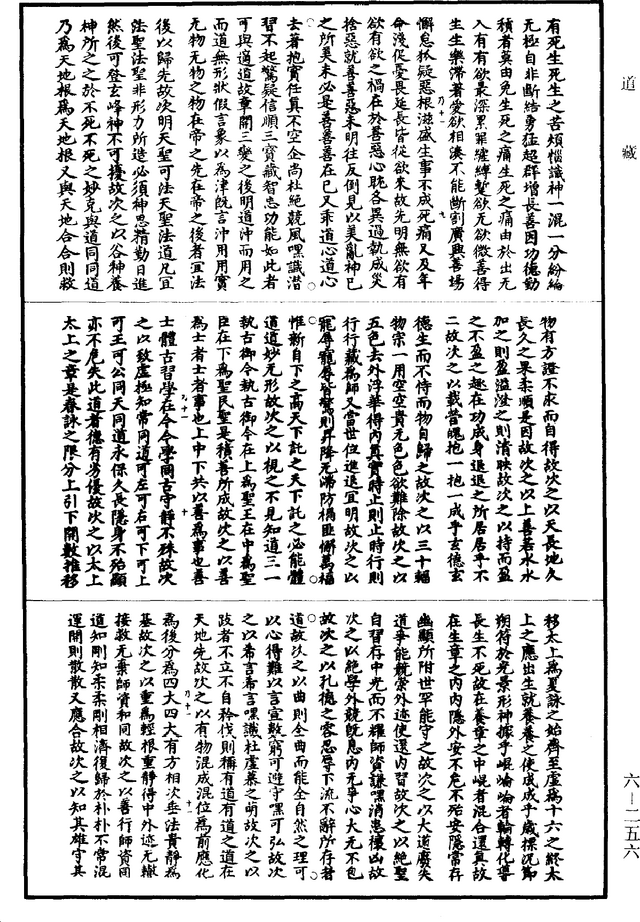 有死生死生之苦煩惱識神一混一分紛綸
无極自非斷結勇猛超群增長善因功德勤
積者莫由免生死之痛生死之痛由於出无
入有有欲最深累罪纏縛堅欲无欲微善得
生生樂滯著愛欲相湊不能斷割廣興善場
懈怠狐疑惡根滋盛生事不成死痛又及年
命淺促憂畏延長皆從欲來故先明無欲有
欲有欲之禍在於善惡心耽各異過執成災
捨惡就善善惡未明往反倒見以美亂神已
之所美未必是善善善在已又乖道心道心
去著抱實任真不空企尚杜絕競風嘿識潛
習不起驚疑信順三寶藏智忠功能如此者
可與適道故章開三變之後明道沖而用之
而道無形狀假言象以為津既言沖用用實
无物无物之物在帝之先在帝之後者宜法
後以歸先故次明天聖可法天聖法道凡宜
法聖法聖非形力所造必須神思精勤日進
然後可登玄峰神不可擾故次之以谷神養
神所之之於不死不死之妙克與道同同道
乃為天地根為天地根又與天地合合則救
物有方證不求而自得故次之以天長地久
長久之果柔順是因故次之以上善若水水
加之則盈溢澄之則清映故次之以持而盈
之不盈之趣在功成身退退之所居居乎不
二故次之以載營魄抱一抱一成乎玄德玄
德生而不恃而物自歸之故次之以三十輻
物宗一用空空貴无色色欲難除故次之以
五色去外浮華得內真實時止則止時行則
行行藏為師又當世位進退宜明故次之以
寵辱寵辱皆驚則昇降无滯防禍匪懈萬福
惟新自下之高天下託之天下託之必能體
道道妙无形故次之以視之不見知道三一
執古御今執古御今在上為聖王在中為聖
臣在下為聖民聖是積善所成故次之以善
為士者士者事也上中下共以善為事也善
士體古習學在今今學同古守靜不殊故次
之以致虛極知常同道可左可右可下可上
可王可公同天同道永保久長隱身不殆顯
亦不危失此道者德有劣優故次之以太上
太上之章是春詠之限分上引下開數推移
移太上為夏詠之始齊至虛為十六之終太
上之應出生就養養之使成成乎歲標況節
朔符於光景形神據乎崐崘崘者輪轉化導
長生不死故在養章之中崐者混合還真故
在生章之內內隱外安不危不殆安隱常存
幽顯所附世罕能守之故次之以大道廢失
道爭能競榮外迹使還內習故次之以絕聖
自習存中光而不耀師資謙嘿消患攘凶故
次之以絕學外競既息內无爭心大无不包
故次之以孔德之容忍辱下流不辭所存者
道故次之以曲則全曲而能全自然之理可
以心得難以言宣數窮可遵守嘿可弘故次
之以希言希言嘿識杜虛慕之萌故次之以
跂者不立不自矜伐則稱有道有道之道在
天地先故次之以有物混成混位為前應化
為後分為四大四大有方相次垂法貴靜為
基故次之以重為輕根重靜得中外迹无轍
接救无棄師資和同故次之以善行師資同
道知剛知柔柔剛相濟復歸於朴朴不常混
運開則散散又應合故次之以知其雄守其
道藏
六－二五六